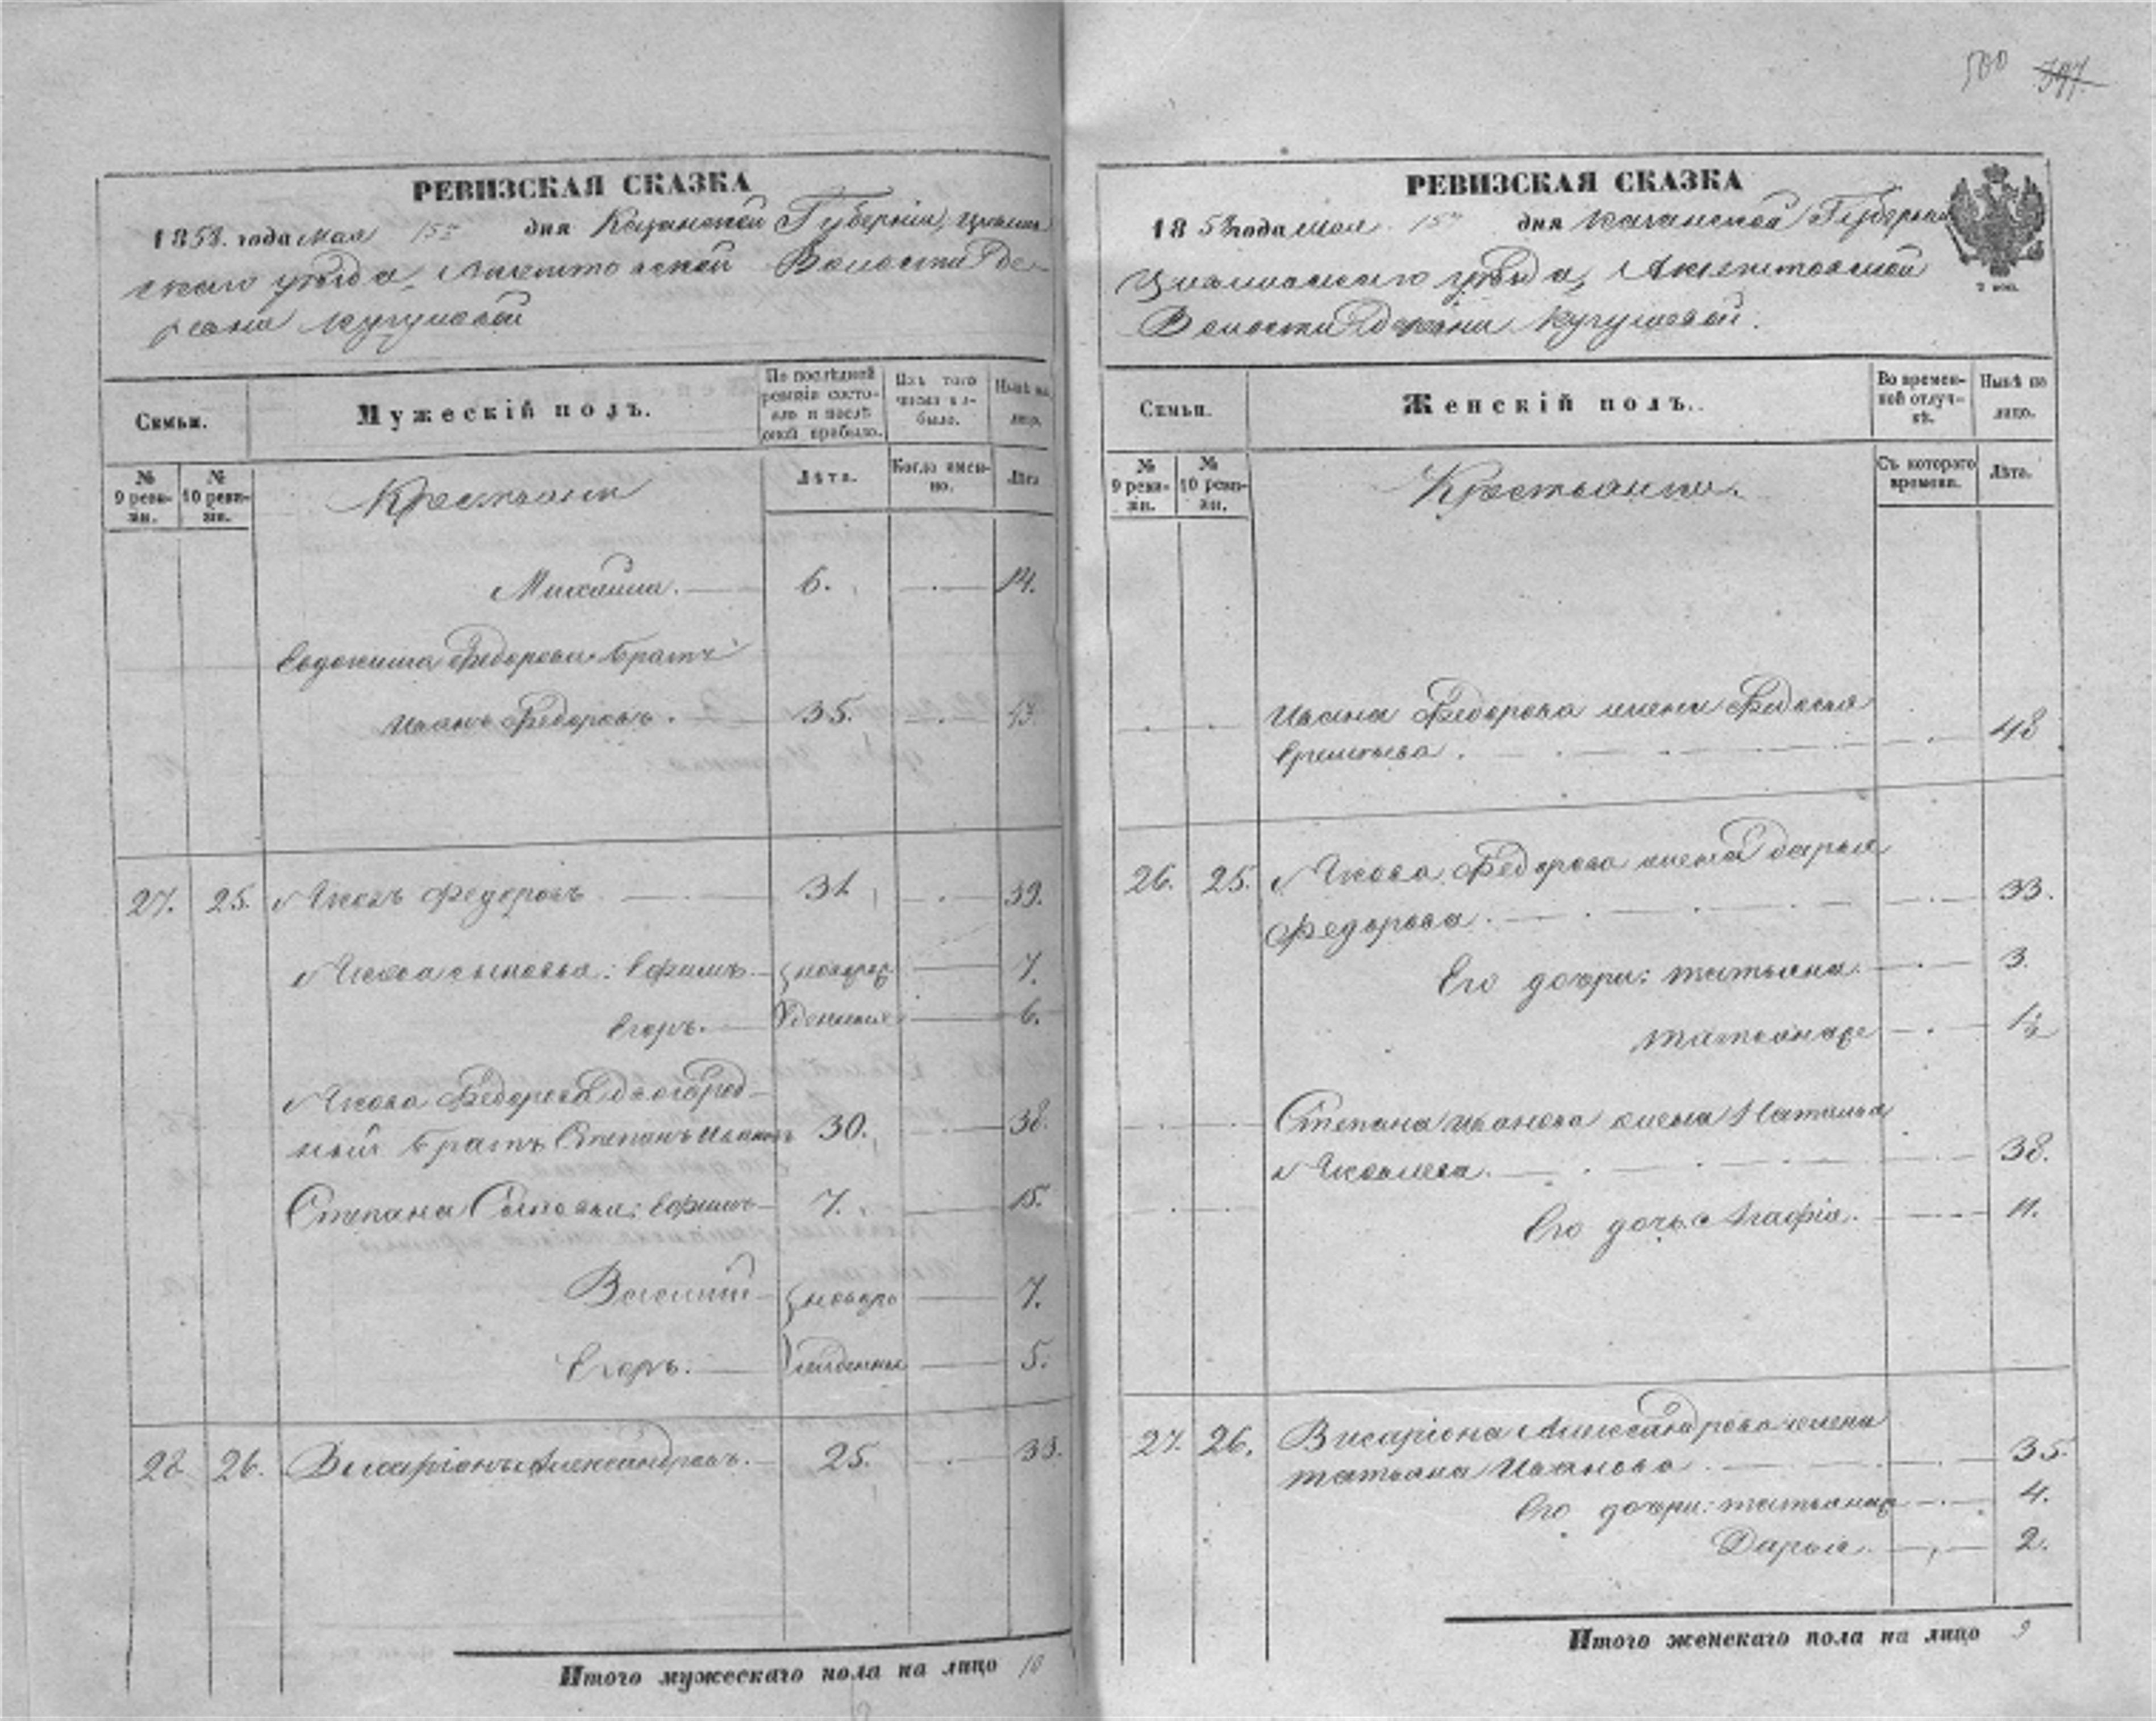 500 397.
РЕВИЗСКАЯ СКАЗКА
1858. года мая 15го дня Казанской Губерніи, Цывиль
скаго уѣзда, Волости де
ревни Кугушевой
Семьи.
Мужескій полъ.
По послѣдней ревизіи состояло и послѣ оной прибыло.
Изъ того числа выбыло.
Нынѣ на лицо.
№ 9 ревизіи.
№ 10 ревизіи.
Крестьяне
Лѣта.
Когда именно.
Лѣта
Михаила. 6. 14.
Евдокима Федорова братъ
Иванъ Федоровъ. 35. 43
27. 25. Яковъ Федоровъ 31 39.
Якова сыновья: Ефимъ новорож 7.
Егоръ. денные 6.
Якова Федорова двоюрод-
ный братъ Степанъ Ивановъ 30. 38.
Степана Сыновья: Ефимъ 7. 15.
Василий новоро 7.
Егоръ. жденные 5.
28. 26. Висаріонъ Александровъ. 25. 33.
Итого мужескаго пола на лицо 10
РЕВИЗСКАЯ СКАЗКА
1858 года мая 15го дня Казанской Губерніи
Цывильскаго уѣзда,
Волости деревни Кугушевой.
2 коп.
Семьи.
Женскій полъ.
Во временной отлучкѣ.
Нынѣ на лицо.
№ 9 ревизіи.
№ 10 ревизіи.
Крестьянки.
Съ котораго времени.
Лѣта.
Ивана Федорова жена Федосья
48
26. 25. Якова Федорова жена Дарья
Федорова. 33.
Его дочери: Татьяна. 3.
Татьяна же 1½
Степана Иванова жена Наталья
Яковлева. 38.
Его дочь Агафія. 11.
27. 26. Висаріона Александрова жена
Татьяна Иванова 35.
Его дочери: Татьяна 4.
Дарья. 2.
Итого женскаго пола на лицо 9